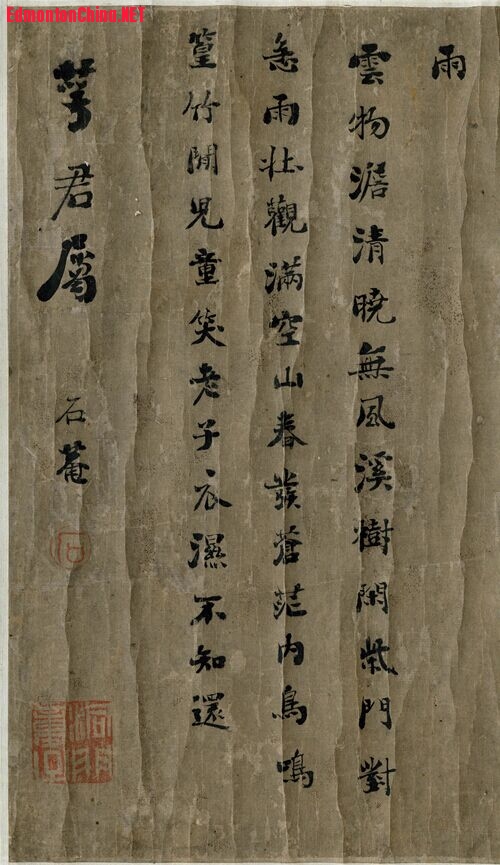 EdmontonChina.NET
雨
雲物澹清曉無風溪樹閑柴門對
急雨壯觀滿空山春發蒼茫内鳥鳴
篁竹閒兒童笑老子衣濕不知還
君屬
石菴
石